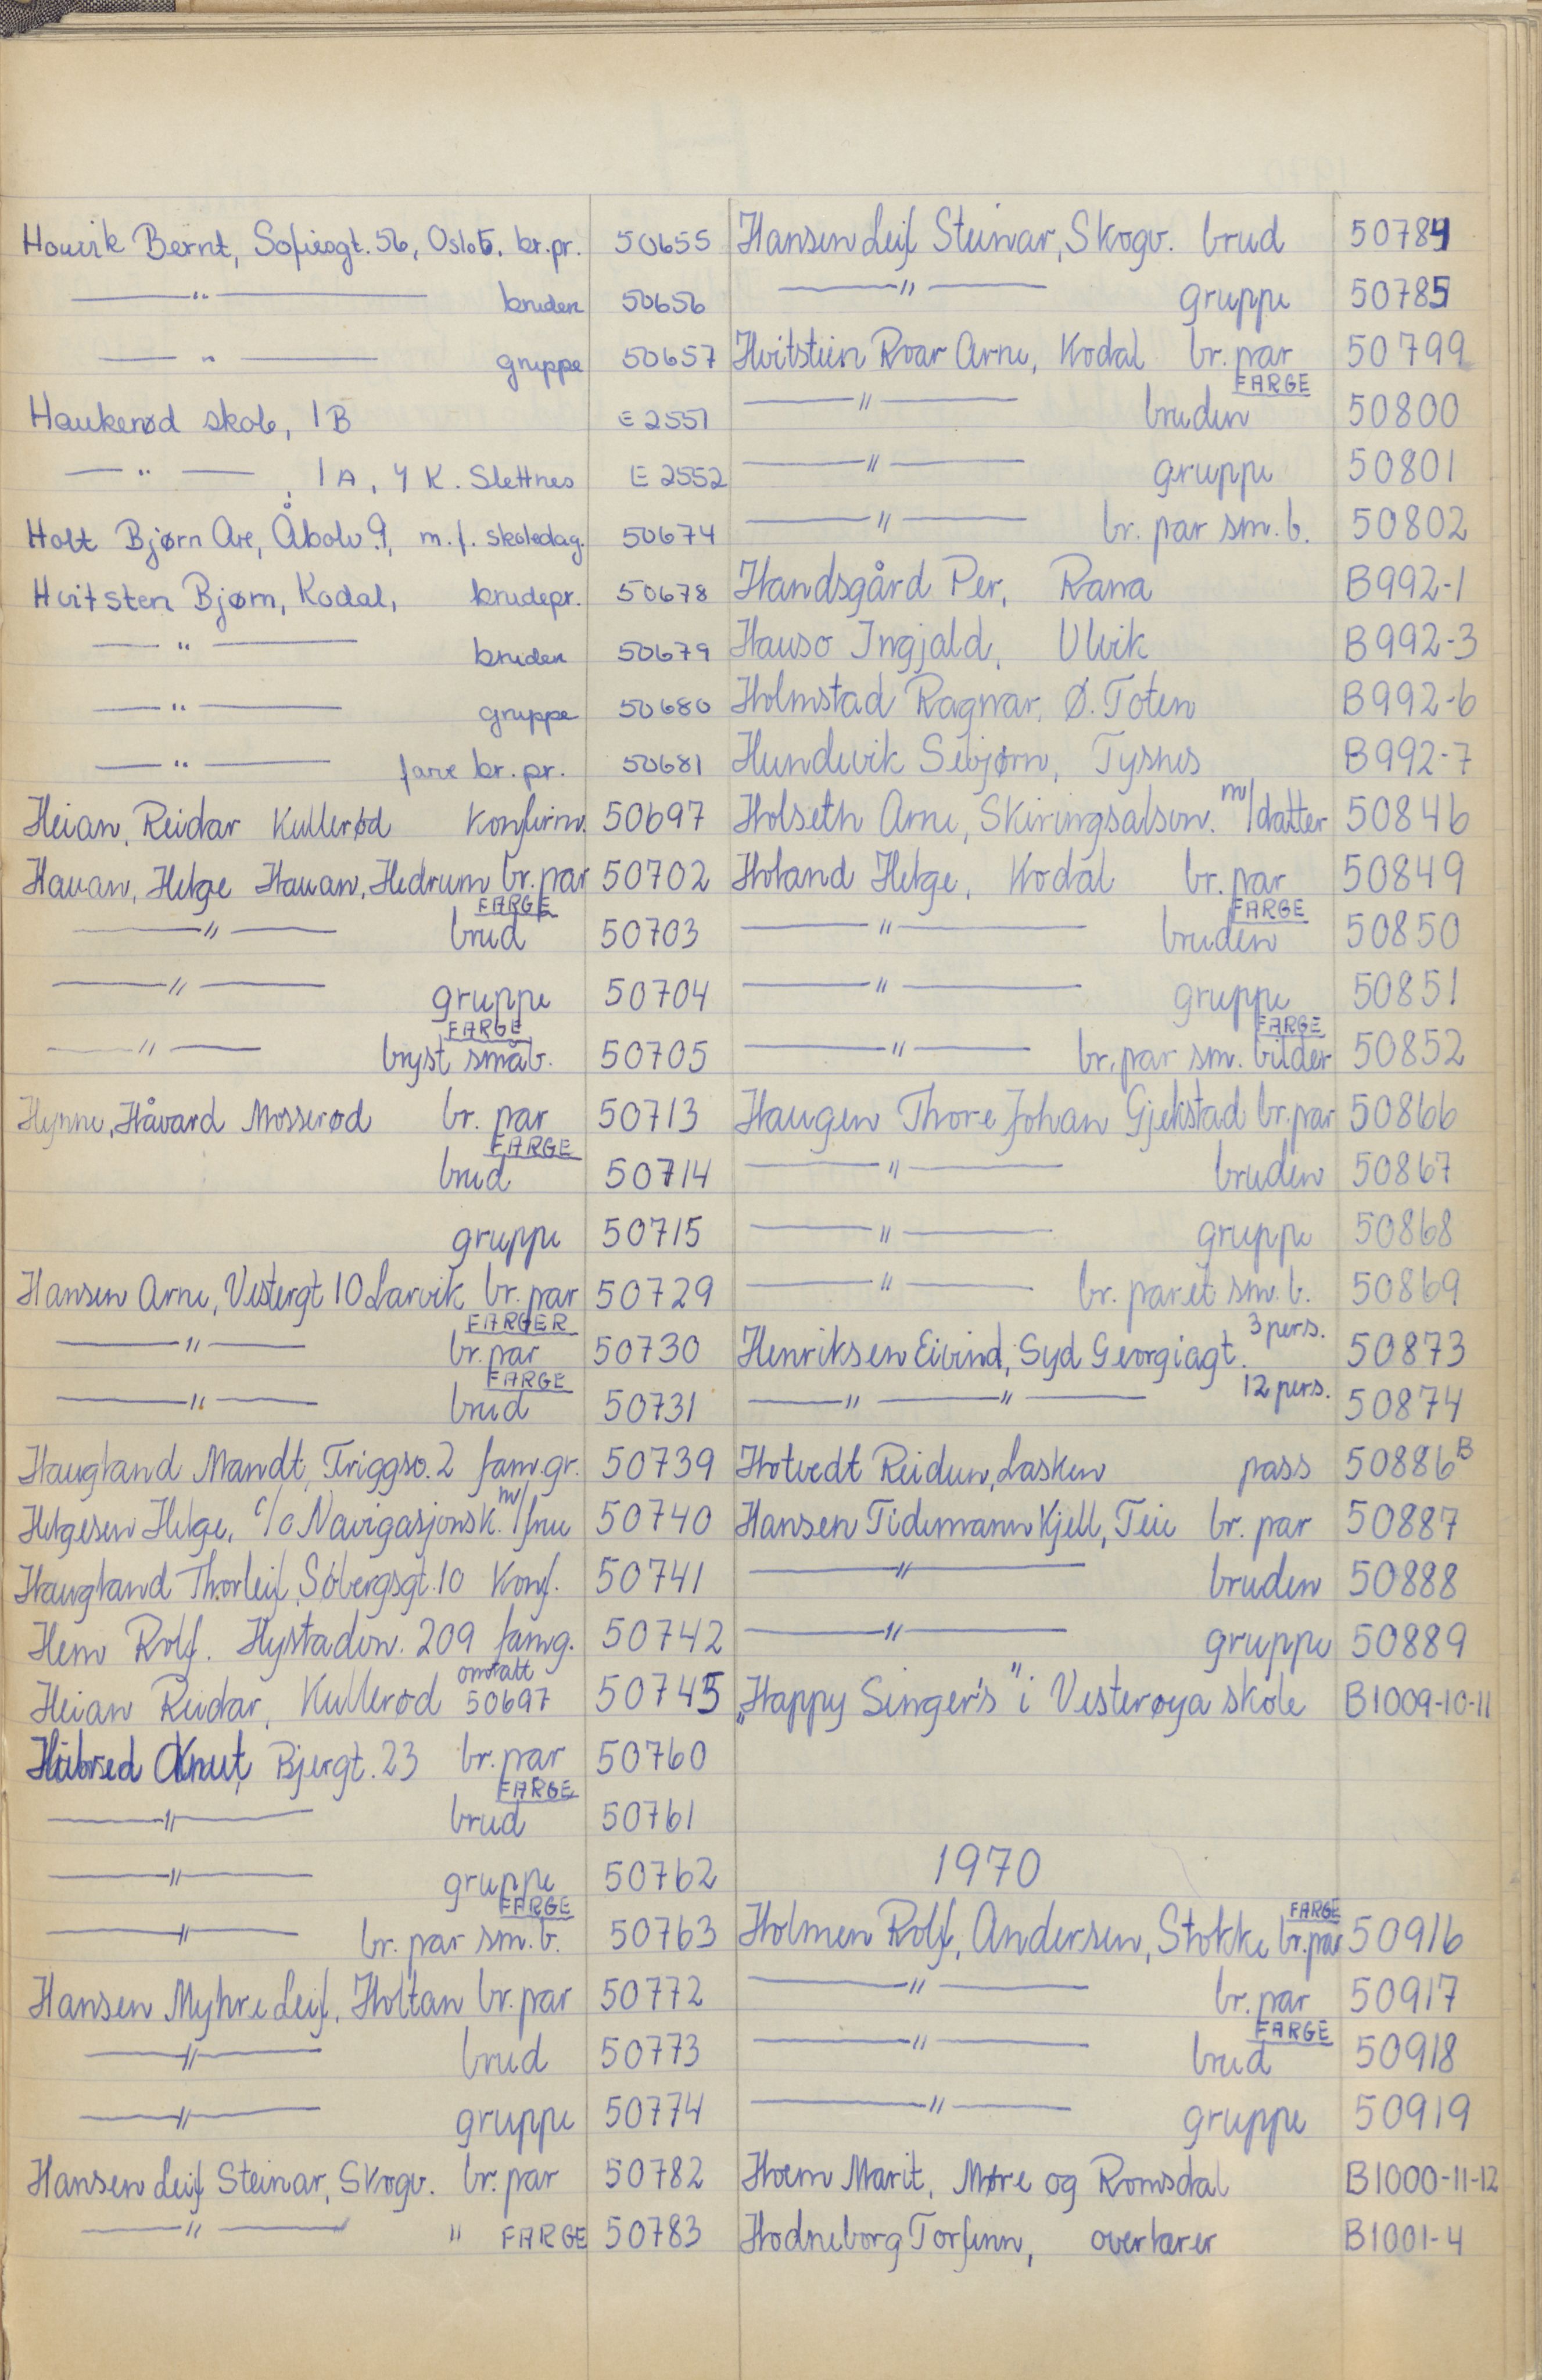 Houvik Bernt, Sofiesgt. 56, Oslo 5. br.pr. 50655
—"— bruden 50656
—"— gruppe 50657
Haukerød skole, 1B E 2551
—"—, 1A, 4 K. Slettnes E 2552
Holt Bjørn Are, Åbolv. 9, m.f. skoledag. 50674
Hvitsten Bjørn, Kodal, brudepr. 50678
—"— bruden 50679
—"— gruppe 50680
—"— farve br.pr. 50681
Heian, Reidar Kullerød Konfirm. 50697
Hauan, Helge Hauan, Hedrum br.par 50702
—"— FARGE brud 50703
—"— gruppe 50704
—"— FARGE bryst småb. 50705
Hynne, Håvard Mosserød br. par 50713
FARGE brud 50714
gruppe 50715
Hansen Arne, Vestergt 10 Larvik br. par 50729
—"— FARGER br.par 50730
—"— FARGE brud 50731
Haugland Mandt, Triggsv. 2 fam.gr. 50739
Helgesen Helge, c/o Navigasjonsk. m/frue 50740
Haugland Thorleif, Sóbergsgt. 10 Konf. 50741
Hem Rolf. Hystadvn. 209 famg. 50742
Heian Reidar, Kullerød omtatt 50697 50745
Knut, Bjergt. 23 br. par 50760
—"— FARGE brud 50761
—"— gruppe 50762
—"— FARGE br. par sm.b. 50763
Hansen Myhre Leif, Holtan br. par 50772
—"— brud 50773
—"— gruppe 50774
Hansen Leif Steinar, Skogv. br. par 50782
—"— " FARGE 50783
Hansen Leif Steinar, Skogv. brud 50784
—"— gruppe 50785
Hvitstein Roar Arne, Kodal br. par 50799
—"— FARGE bruden 50800
—"— gruppe 50801
—"— br. par sm. b. 50802
Handsgård Per, Rana B992-1
Hauso Ingjald, Ulvik B992-3
Holmstad Ragnar, Ø. Toten B992-6
Hundevik Sebjørn, Tysnes B992-7
Holseth Arne, Skiringsalsvn. m/datter 50846
Holand Helge, Kodal br. par 50849
—"— FARGE bruden 50850
—"— gruppe 50851
—"— FARGE br. par sm. bilder 50852
Haugen Thore Johan Gjekstad br.par 50866
—"— bruden 50867
—"— gruppe 50868
—"— br. paret sm. b. 50869
Henriksen Eivind, Syd Georgiagt. 3 pers. 50873
—"— —"— 12 pers. 50874
Hotvedt Reidun, Lasken pass 50886 B
Hansen Tidemann Kjell, Teie br. par 50887
—"— bruden 50888
—"— gruppe 50889
„Happy Singer's" i Vesterøya skole B1009-10-11
1970
Holmen Rolf, Andersen, Stokke FARGE br.par 50916
—"— br. par 50917
—"— FARGE brud 50918
—"— gruppe 50919
Hoem Marit, Møre og Romsdal B1000-11-12
Hodneborg Torfinn, overlærer B1001-4